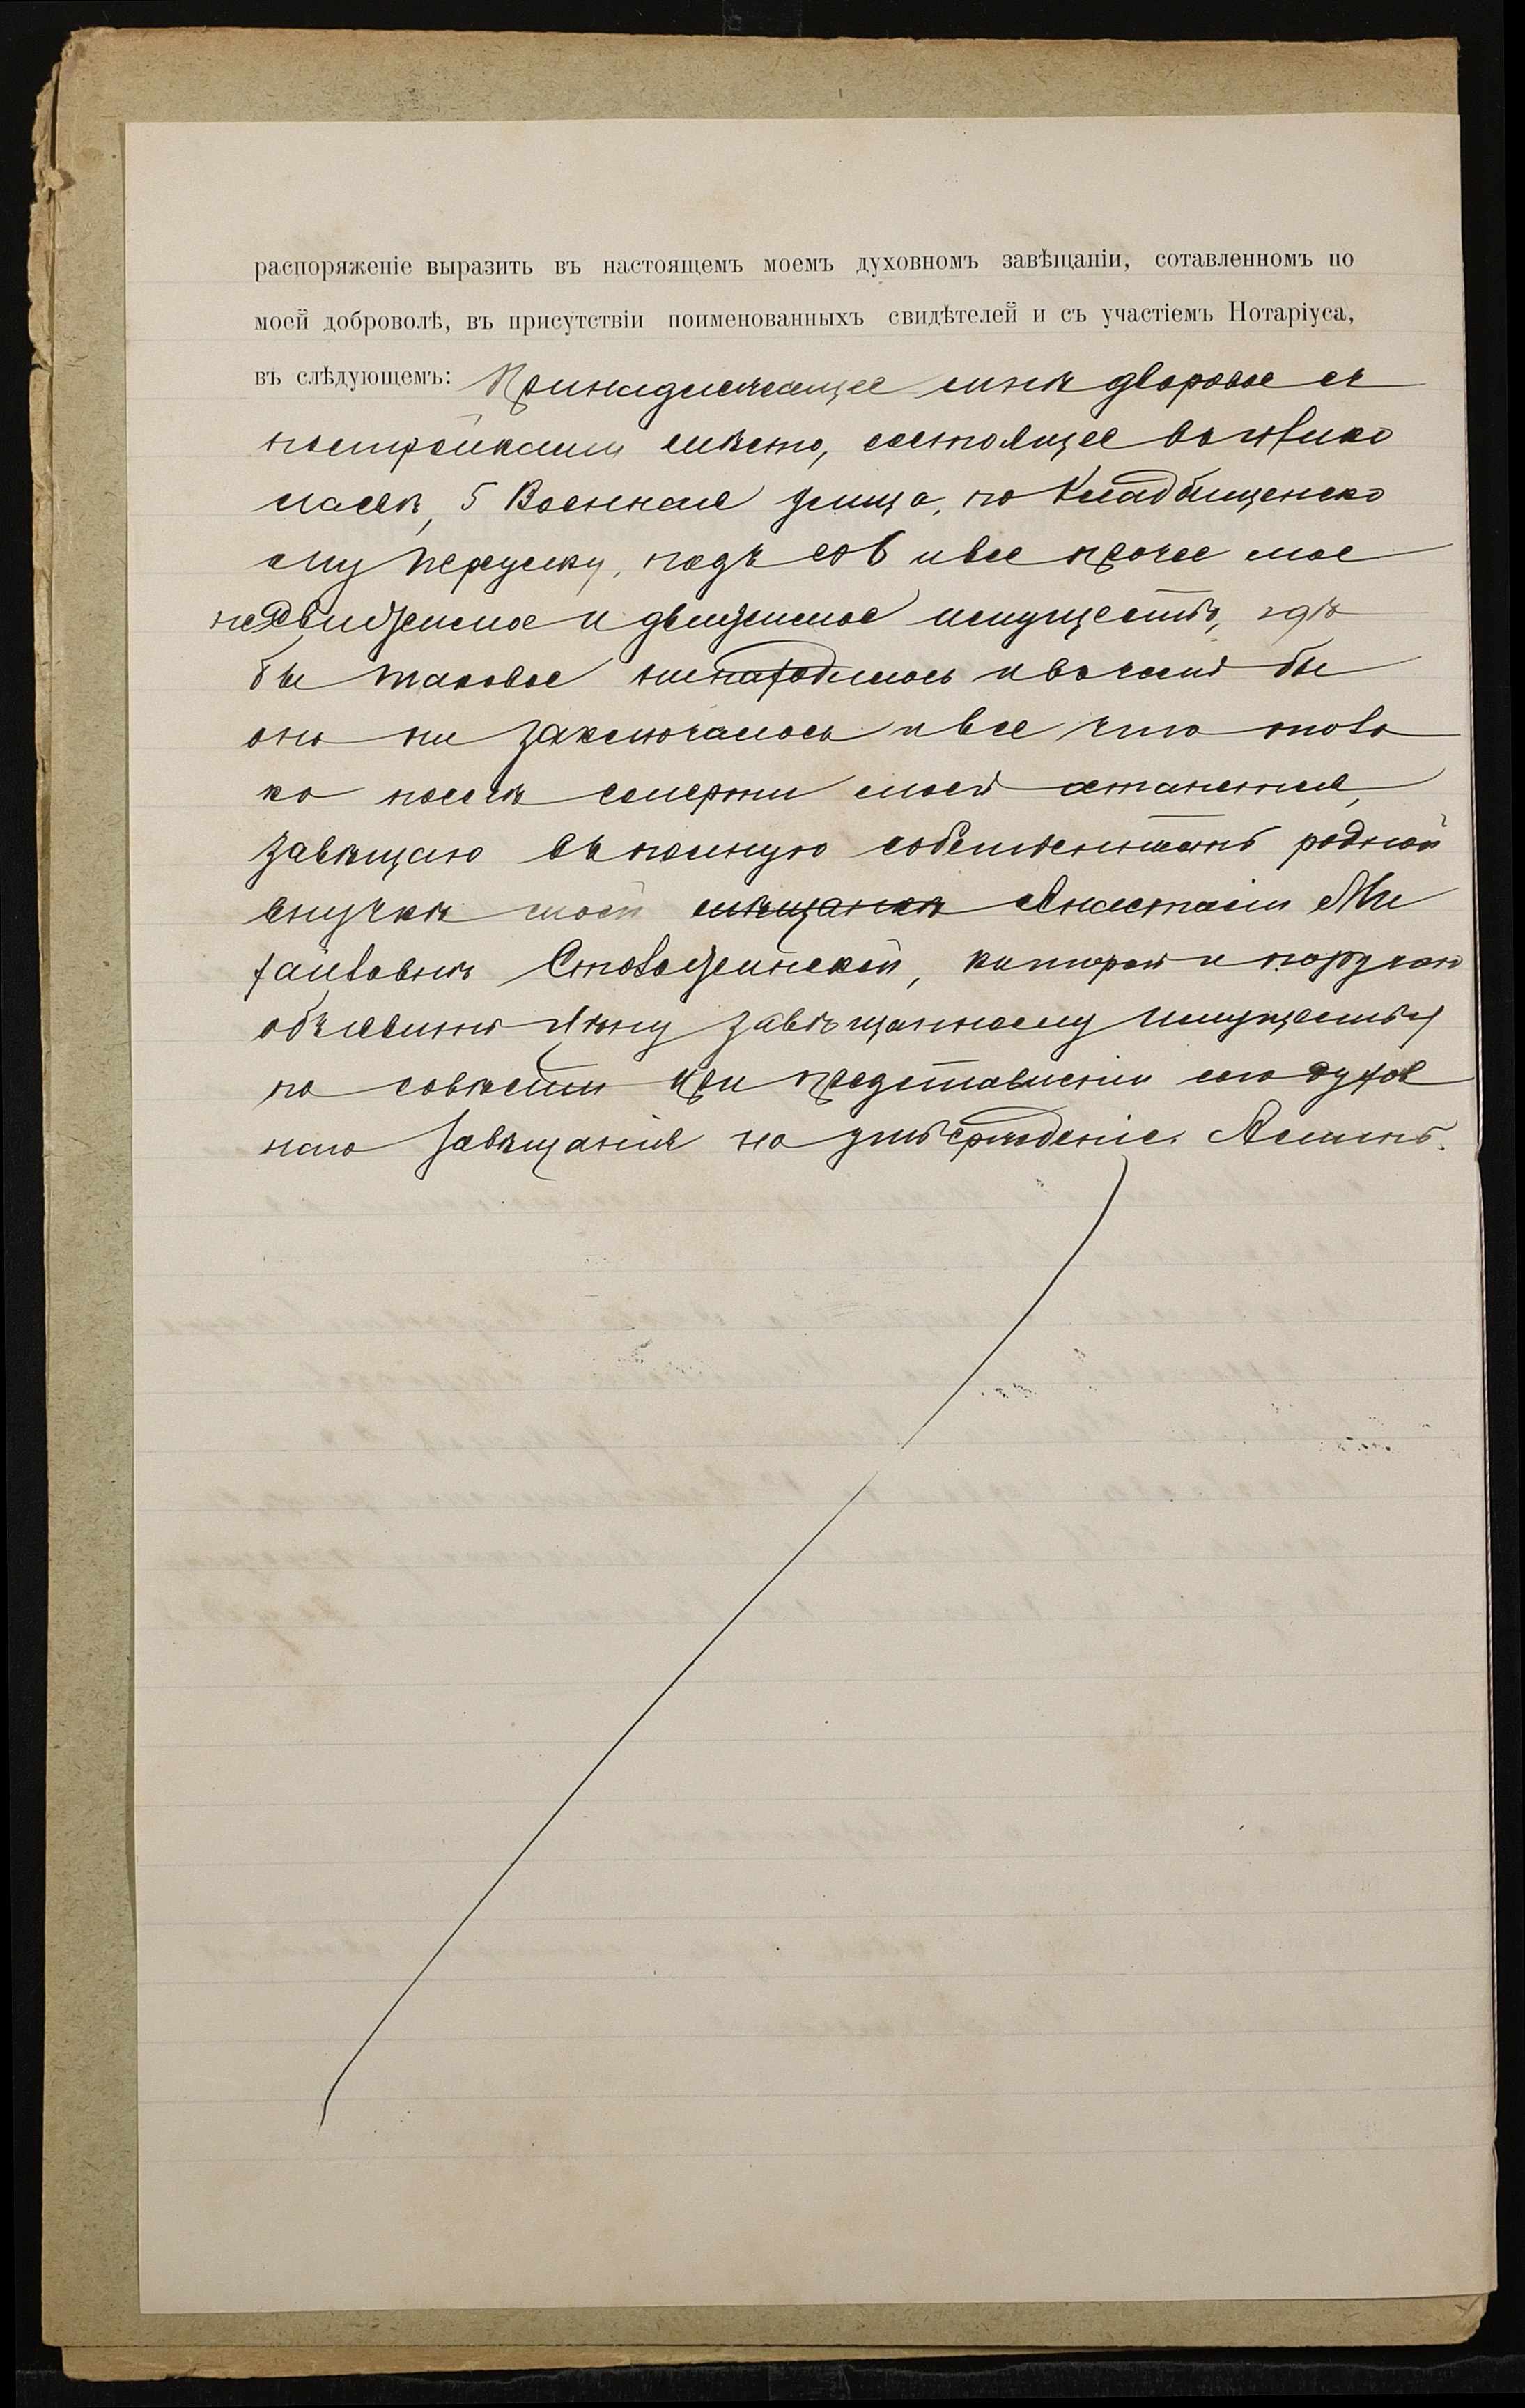 распоряженіе выразить въ настоящемъ моемъ духовномъ завѣщаніи, сотавленномъ по
моей доброволѣ, въ присутствіи поименованныхъ свидѣтелей и съ участіемъ Нотаріуса,
въ слѣдующемъ: Принадлежащее мнѣ дворовое съ
постройками мѣсто, состоящее въ г. Нико
лаевѣ, 5 Военная улица, по Кладбищенско
му переулку, подъ № 6 и все прочее мое
недвижимое и движимое имущество, гдѣ
бы таковое ни находилось и въ чемъ бы
оно ни заключалось и все что толь
ко послѣ смерти моей останется,
завѣщаю въ полную собственность родной
внучкѣ моей мѣщанкѣ Анастасіи Ми
хайловнѣ Столожинской, которой и поручаю
объявить цѣну завѣщанному имуществу
по совѣсти при представленіи сего духов
наго завѣщанія на утвержденіе. Аминь.